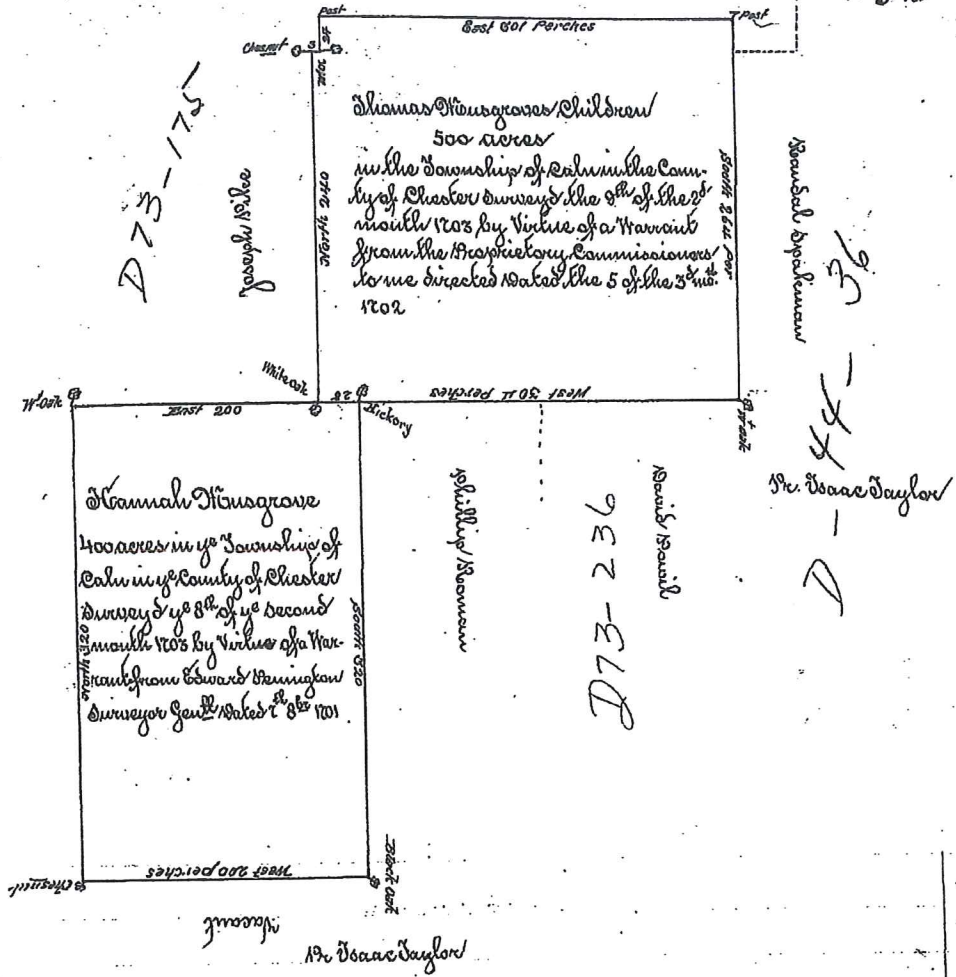 Post
East 301 Perches
Post
Chesnut
3
24
North 240
Thomas Musgroves Children
500 acres
in the Township of Caln in the Coun-
ty of Chester Surveyd the 8th of the 2d
month 1703 by Virtue of a Warrant
from the Proprietary Commissioners
to me directed Dated the 5 of the 3d mo.
1702
South 264 Per
Joseph Pike
D 73-175
Randal Spakman
D-44-36
Pr. Isaac Taylor
W. Oak
East 200
White oak
28
Hickory
West 304 Perches
Hannah Musgrove
400 acres in ye Township of
Caln in ye County of Chester
Surveyd ye 8th of ye Second
month 1703 by Virtue of a War-
rant from Edward Penington
Surveyor Genll Dated 8br 1701
North 320
South 320
Phillip Roman
David David
D73-236
Chesnut
West 200 perches
Black Oak
Vacant
Pr Isaac Taylor